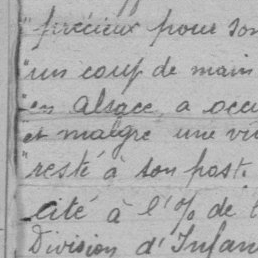 "précieux pour son
"un coup de main
"en Alsace, a occu
"et malgré une vi
"resté à son post
cité à l'% de l
Division d'Infan